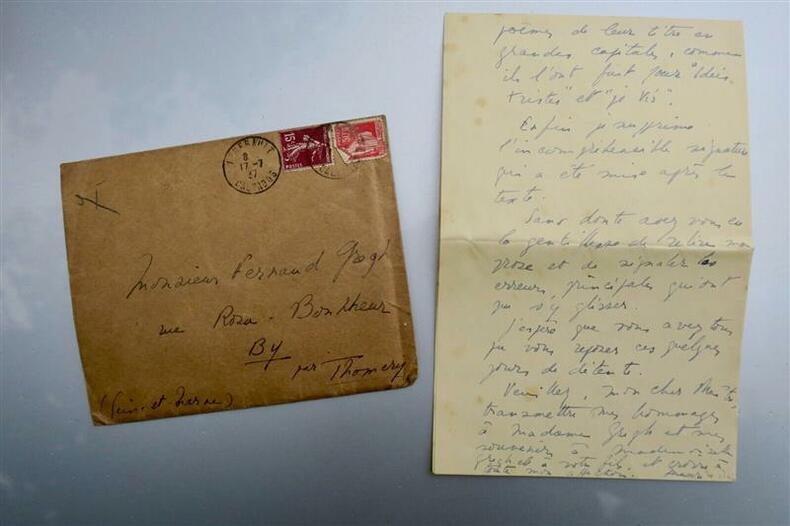 ABERVILLE
8
17-7
37
CALVADOS
15c
POSTES
50c
Monsieur Fernand Gregh
rue Rosa-Bonheur
By
par Thomery
(Seine-et-Marne)
poèmes de leur titre en
grandes capitales, comme
ils l'ont fait pour "Idées
tristes" et "je vis".
Enfin je supprime
l'incompréhensible signature
qui a été mise après le
texte.
Sans doute avez vous eu
la gentillesse de relire ma
prose et de signaler les
erreurs principales qui ont
pu s'y glisser.
J'espère que vous avez tous
pu vous reposer ces quelques
jours de détente.
Veuillez, mon cher Maître,
transmettre mes hommages
à Madame Gregh et mes
souvenirs à Mademoiselle
Gregh et à votre fils, et croire à
toute mon affection.